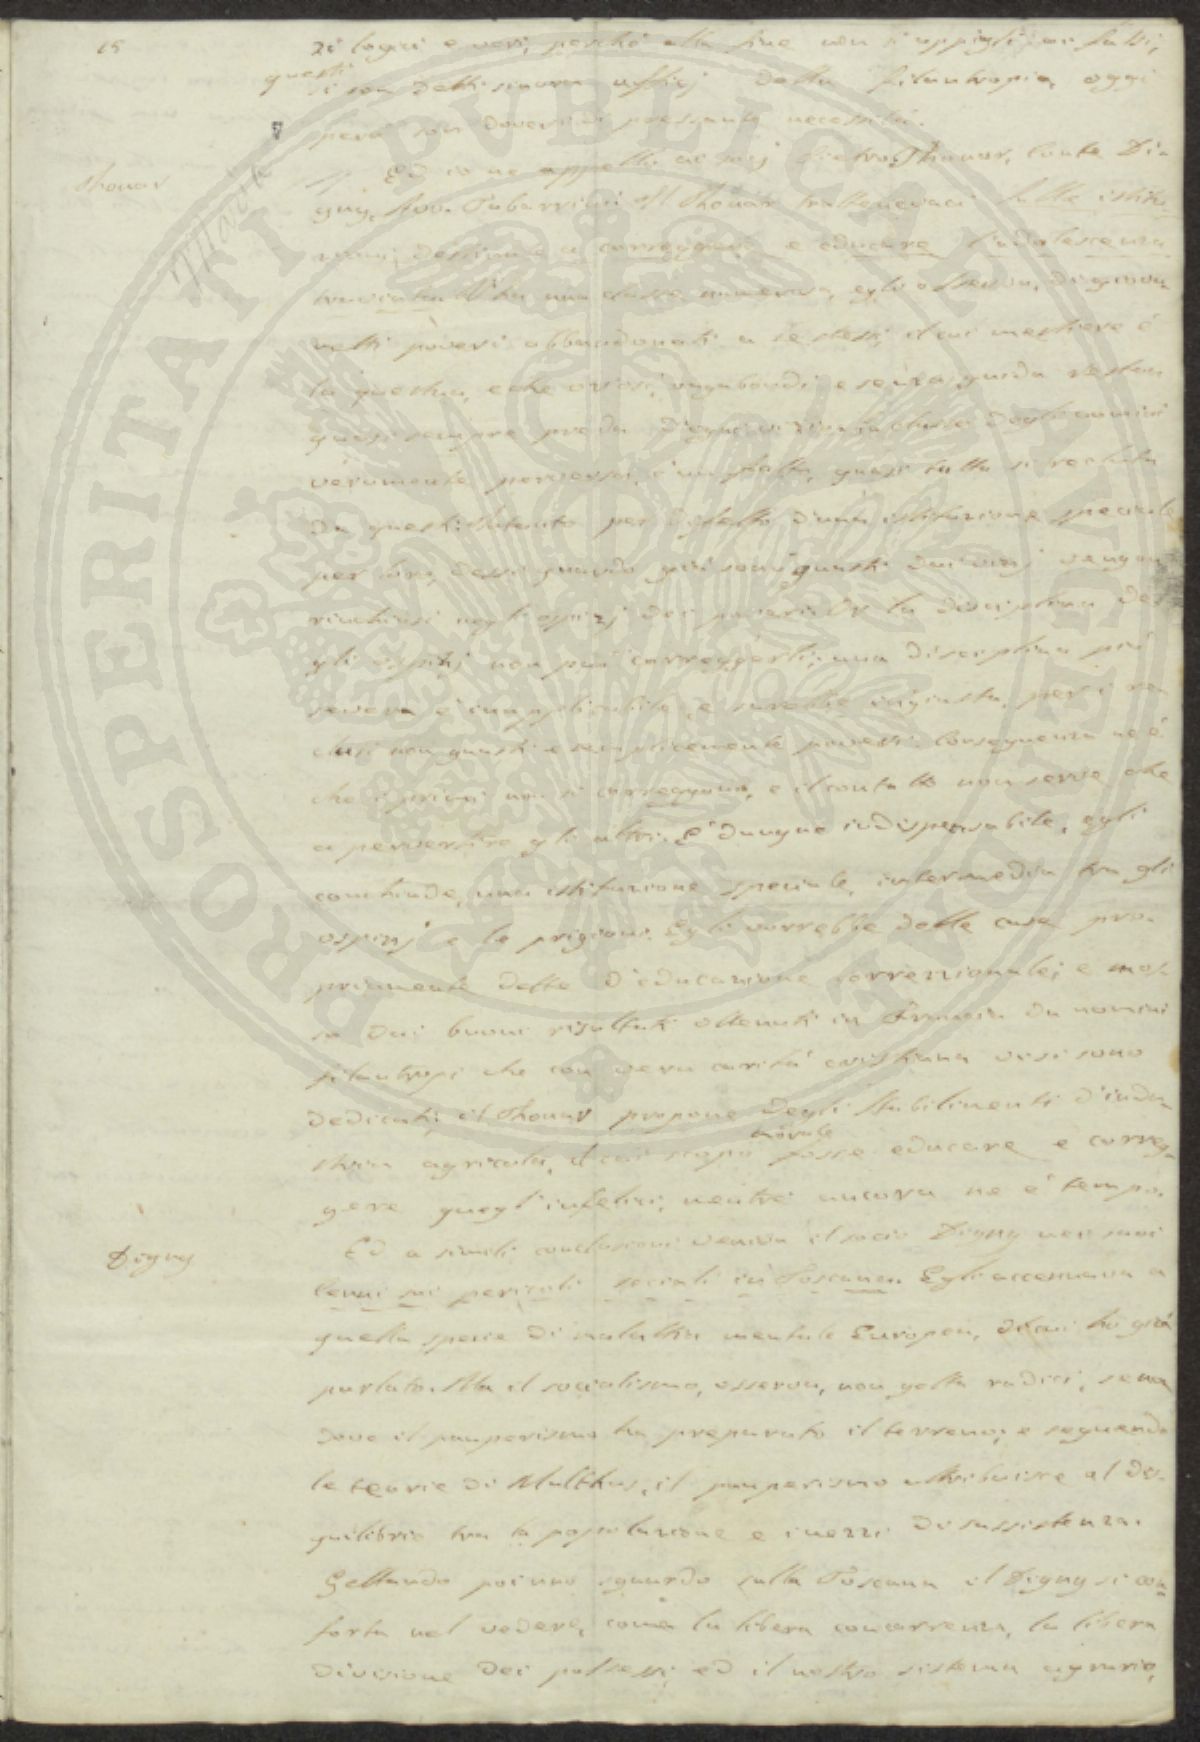 15
zi logici e veri, perché alla fine non si appigli ai falsi,
questi
si son detti sinora ufficj della filantropia, oggi
però son doveri di pressante necessità.
Thouar
Ed io ne appello ai socj Pietro Thouar, Conte Di-
gny, Avv. Tabarrini. Il Thouar trattenevaci sulle istitu-
zioni destinate a correggere e educare l'adolescenza
traviata. V'ha una classe numerosa, egli osserva, di giova-
netti poveri abbandonati a se stessi, il cui mestiere è
la questua, e che oziosi, vagabondi e senza guida restan
quasi sempre preda
veramente perversi, è infatti, quasi tutta si recluta
da questi. Intanto per difetto d'una istituzione speciale
per loro, dessi quando già sono guasti dai vizj vengon
rinchiusi negli ospizj dei poveri. Or la disciplina de-
gli ospizj non può correggerli; una disciplina più
severa è inapplicabile, e sarebbe ingiusta, per i re-
clusi non guasti e semplicemente poveri. Conseguenza ne è
che i primi non si correggono, e il contatto non serve che
a pervertire gli altri. È dunque indispensabile, egli
conchiude, una istituzione speciale, intermedia tra gli
ospizj e le prigioni. Egli vorrebbe delle case pro-
priamente dette d'educazione correzionale; e mos-
so dai buoni risultati ottenuti in Francia da uomini
filantropi che con vera carità cristiana vi si sono
dedicati, il Thouar propone degli stabilimenti d'indu-
morale
stria agricola, il cui scopo fosse educare e correg-
gere quegl'infelici, mentre ancora ne è tempo.
Digny
Ed a simili conclusioni veniva il socio Digny nei suoi
Cenni sui pericoli sociali in Toscana. Egli accennava a
quella specie di malattia mentale Europea, di cui ho già
parlato. Ma il socialismo, osserva, non getta radici, se non
dove il pauperismo ha preparato il terreno; e seguendo
le teorie di Malthus, il pauperismo attribuisce al dis-
quilibrio tra la popolazione e i mezzi di sussistenza.
Gettando poi uno sguardo sulla Toscana il Digny si con-
forta nel vedere, come la libera concorrenza, la libera
divisione dei possessi, ed il nostro sistema agrario,
PROSPERITATI PUBLICAE AUGENDAE